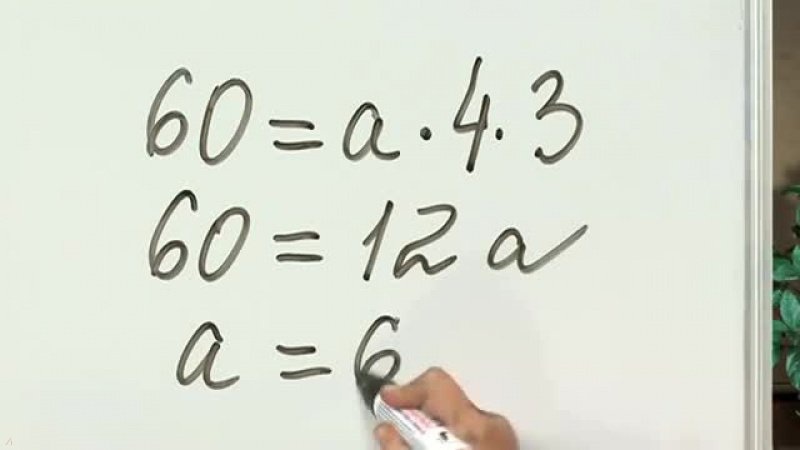 60 = a · 4 · 3
60 = 12 a
a = 6